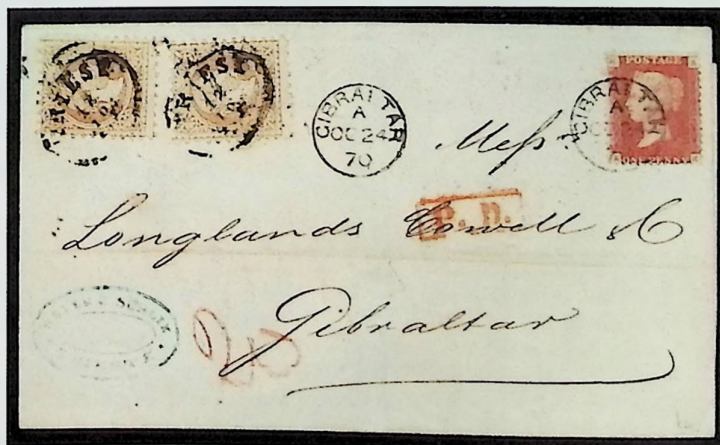 TRIESTE
TRIESTE
GIBRALTAR
A
OC 24
70
POSTAGE
ONE PENNY
GIBRALTAR
A
OC 24
Messrs
P.D.
Longlands Cowell & Co
Gibraltar